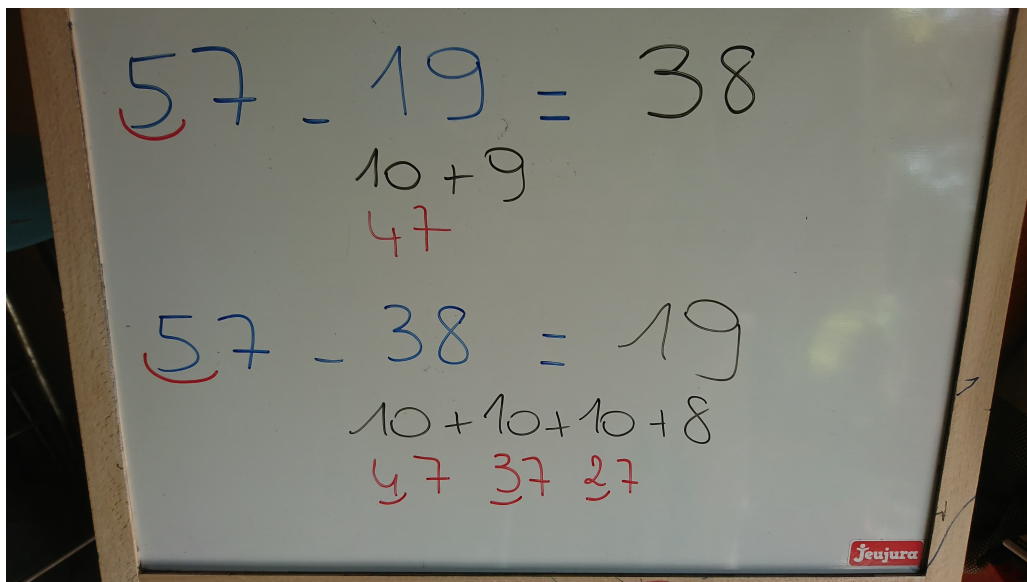 57 - 19 = 38
10 + 9
47
57 - 38 = 19
10 + 10 + 10 + 8
47 37 27
Jeujura